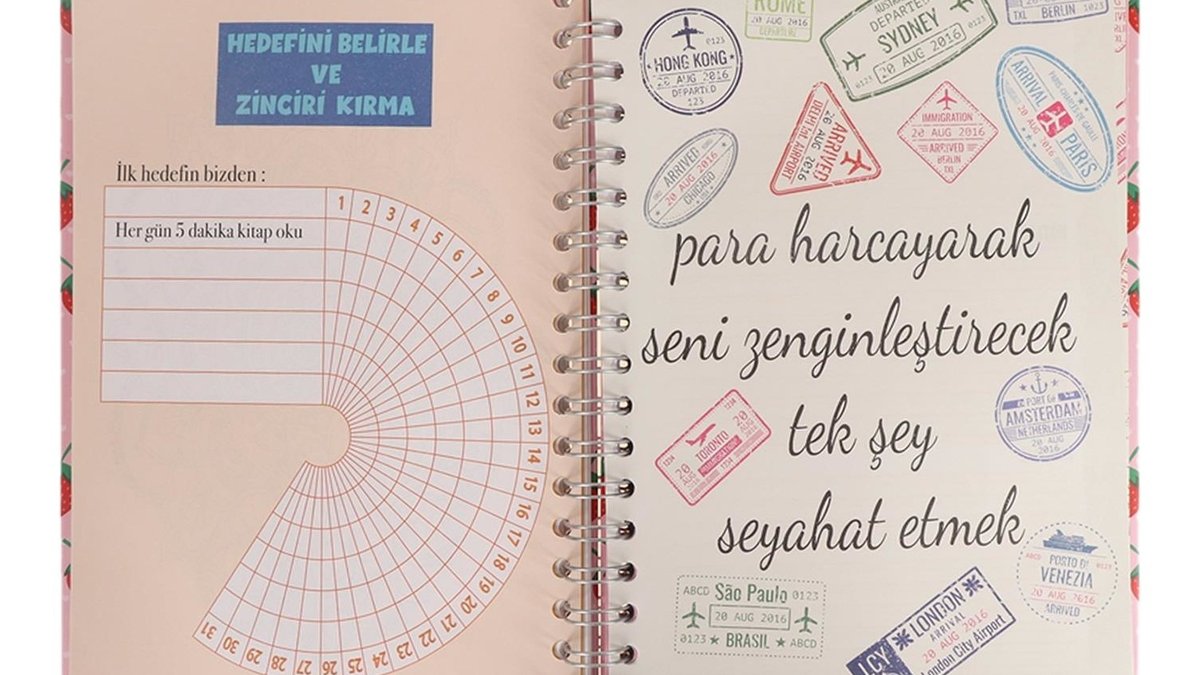 HEDEFİNİ BELİRLE
VE
ZİNCİRİ KIRMA
İlk hedefin bizden :
Her gün 5 dakika kitap oku
1
2
3
4
5
6
7
8
9
10
11
12
13
14
15
16
17
18
19
20
21
22
23
24
25
26
27
28
29
30
31
ROME
20 AUG 2016
0123
HONG KONG
20 AUG 2016
DEPARTED
123
DEPARTED
SYDNEY
20 AUG 2016
0123
TXL
BERLIN
123
ARRIVED
20 AUG 2016
CHICAGO
DELHI Int. AIRPORT
20 AUG 2016
ARRIVED
IMMIGRATION
20 AUG 2016
ARRIVED
BERLIN
TXL
ARRIVAL
PARIS CHARLES DE GAULLE
PARIS
para harcayarak
seni zenginleştirecek
tek şey
seyahat etmek
1234
TORONTO
20 AUG 2016
20 AUG 2016
1234
PORT OF
AMSTERDAM
NETHERLANDS
20 AUG
2016
ABCD São Paulo 0123
20 AUG 2016
0123 ★ BRASIL ★ ABCD
LCY
LONDON
ARRIVAL
20 AUG 2016
London City Airport
ABCD
0123
PORTO DI
VENEZIA
20 AUG 2016
ARRIVED